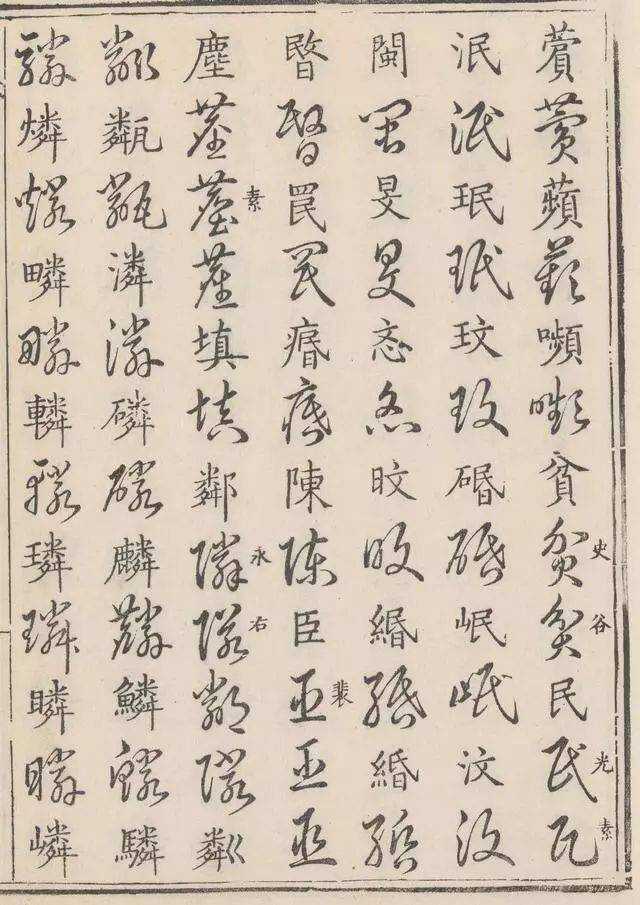 薲薲蘋蘋嚬嚬貧貧史貧谷民民光民素
泯泯珉珉玟玟碈碈岷岷汶汶
閩閩旻旻忞忞旼旼緡緡緍緍
暋暋罠罠痻痻陳陳臣臣裴臣臣
塵塵塵素塵填填鄰鄰永鄰右鄰鄰粼
粼甐甐潾潾磷磷麟麟鱗鱗驎
驎燐燐疄疄轔轔璘璘瞵瞵嶙